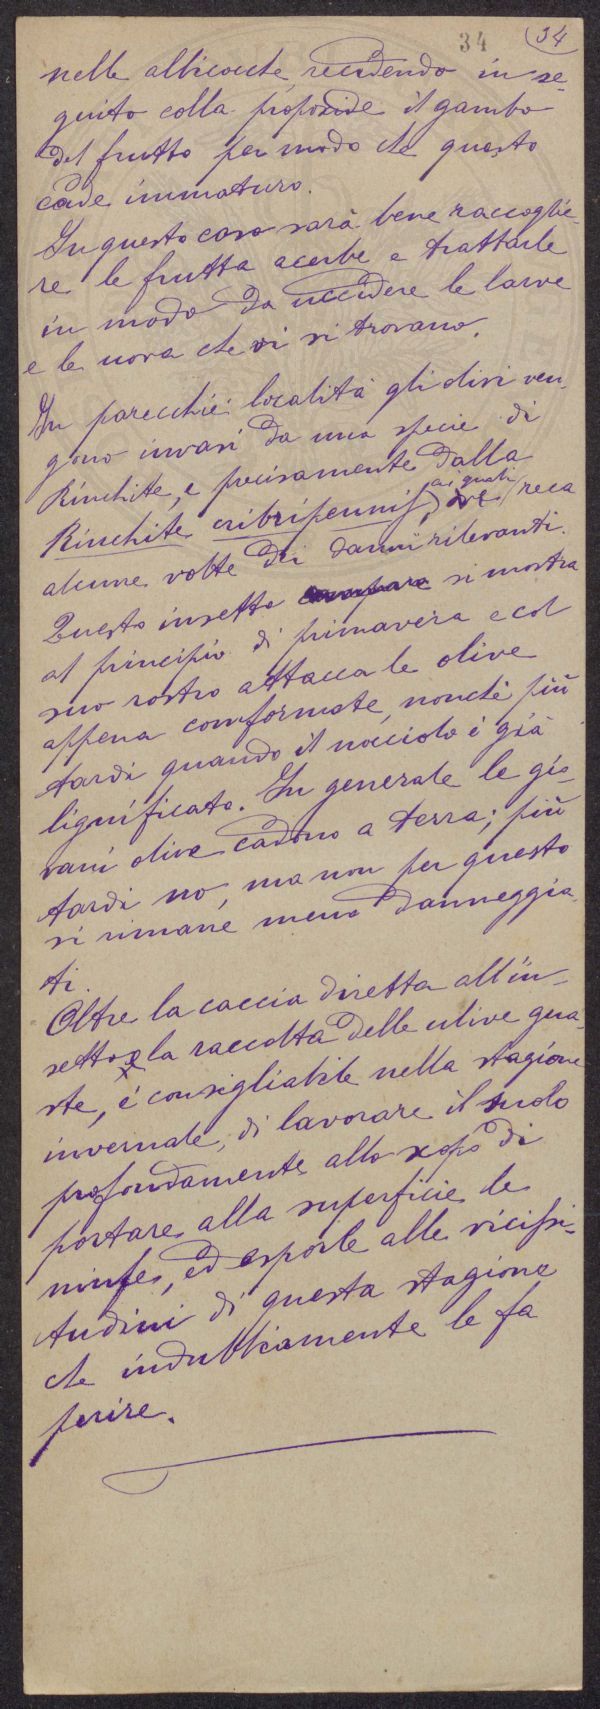 34 34
nelle albicocche, recidendo in se-
guito colla proposcide il gambo
del frutto per modo che questo
cade immaturo.
In questo caso sarà bene raccoglie-
re le frutta acerbe e trattarle
in modo da uccidere le larve
e le uova che vi si trovano.
In parecchie località gli olivi ven-
gono invasi da una specie di
Rinchite, e precisamente dalla
Rinchite cribripennis, ai quali reca
alcune volte dei danni rilevanti.
Questo insetto si mostra
al principio di primavera e col
suo rostro attacca le olive
appena conformate, nonchè più
tardi quando il nocciolo è già
lignificato. In generale le gio-
vani olive cadono a terra; più
tardi no, ma non per questo
si rimane meno danneggia-
ti.
Oltre la caccia diretta all'in-
setto e la raccolta delle ulive gua-
ste, è consigliabile nella stagione
invernale, di lavorare il suolo
profondamente allo scopo di
portare alla superficie le
ninfe, ed esporle alle vicissi-
tudini di questa stagione
che indubbiamente le fa
perire.